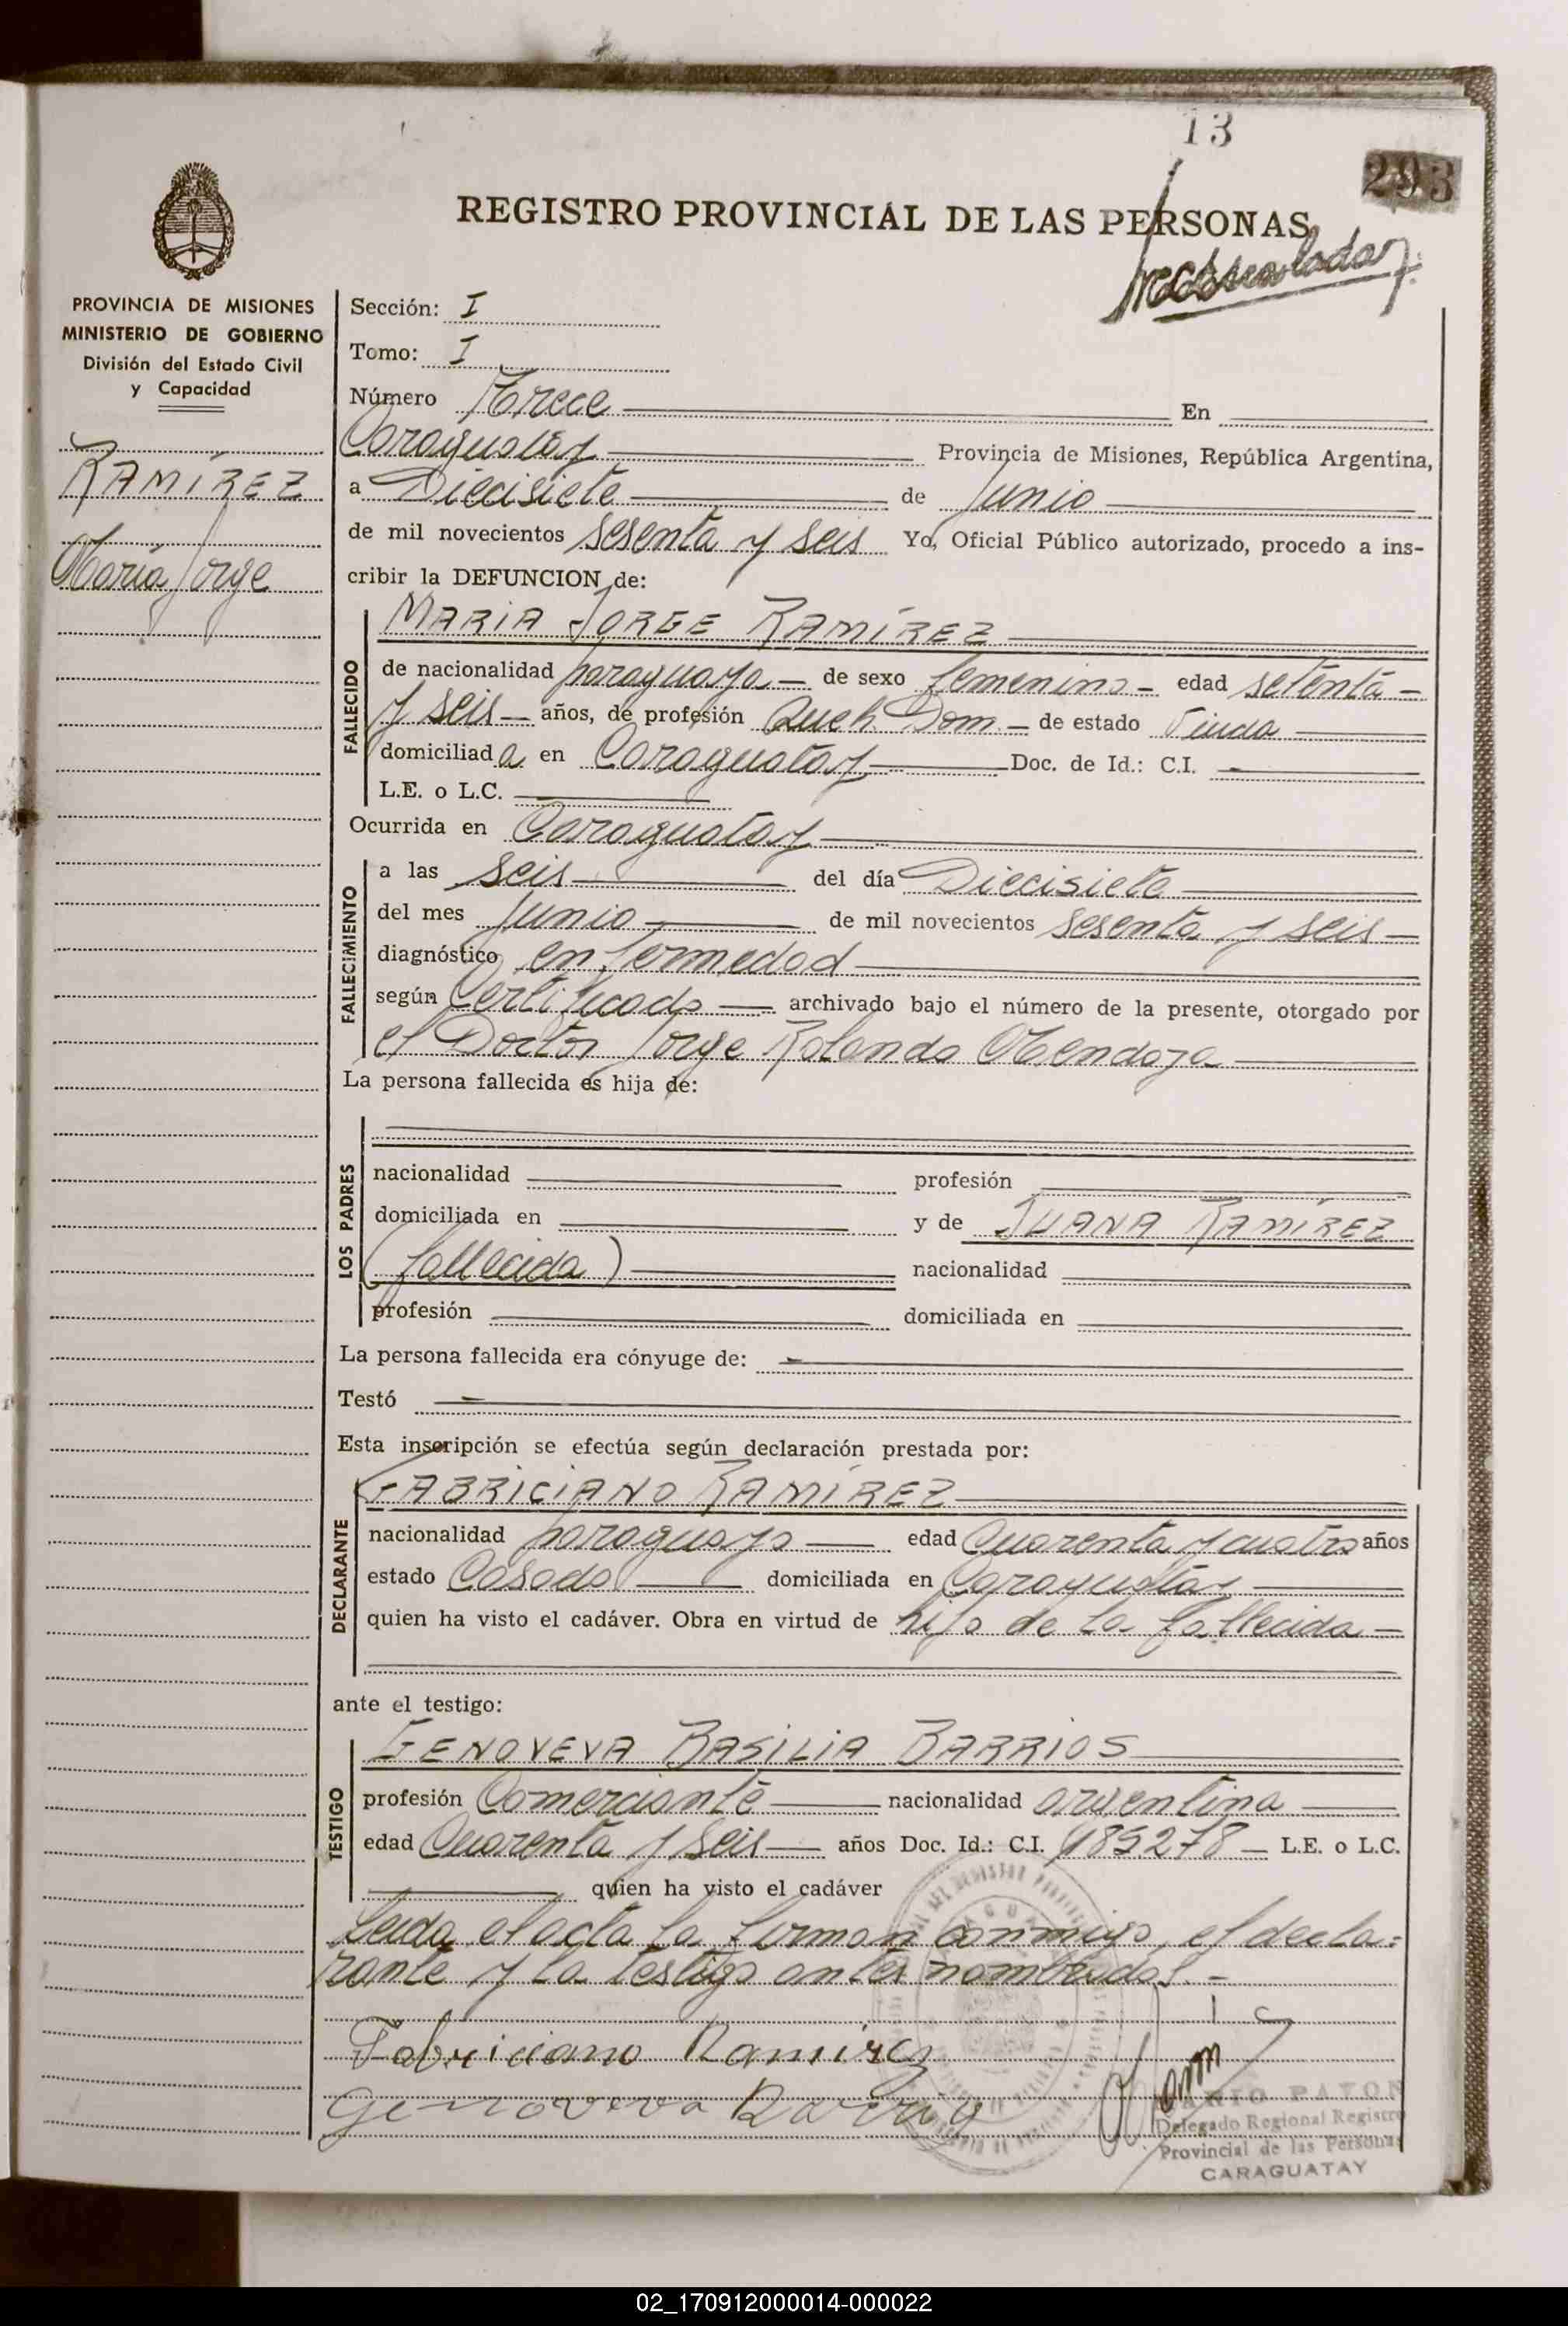 13
293
REGISTRO PROVINCIAL DE LAS PERSONAS
PROVINCIA DE MISIONES
MINISTERIO DE GOBIERNO
División del Estado Civil
y Capacidad
RAMÍREZ
María Jorge
Sección: I
Tomo: I
Número Trece En
Caraguatay Provincia de Misiones, República Argentina,
a Diecisiete de Junio
de mil novecientos sesenta y seis Yo, Oficial Público autorizado, procedo a ins-
cribir la DEFUNCION de:
MARIA JORGE RAMÍREZ
FALLECIDO
de nacionalidad paraguaya — de sexo femenino - edad setenta -
y seis — años, de profesión Queh. Dom. — de estado Viuda
domiciliada en Caraguatay Doc. de Id.: C.I. —
L.E. o L.C.
Ocurrida en Caraguatay
FALLECIMIENTO
a las seis del día Diecisiete
del mes Junio de mil novecientos sesenta y seis —
diagnóstico enfermedad
según Certificado — archivado bajo el número de la presente, otorgado por
el Doctor Jorge Rolando Mendoza
La persona fallecida es hija de:
LOS PADRES
nacionalidad profesión
domiciliada en y de JUANA RAMÍREZ
(fallecida) nacionalidad
profesión domiciliada en
La persona fallecida era cónyuge de: —
Testó —
Esta inscripción se efectúa según declaración prestada por:
FABRICIANO RAMÍREZ
DECLARANTE
nacionalidad paraguayo — edad Cuarenta y cuatro años
estado Casado domiciliada en Caraguatay
quien ha visto el cadáver. Obra en virtud de hijo de la fallecida —
ante el testigo:
GENOVEVA BASILIA BARRIOS
TESTIGO
profesión Comerciante nacionalidad argentina
edad Cuarenta y seis — años Doc. Id.: C.I. 185.278 — L.E. o L.C.
quien ha visto el cadáver
Leida el acta la firman conmigo, el decla=
rante y la testigo antes nombrados. -
Fabriciano Ramirez
Genoveva Barrios
Delegado Regional Registro
Provincial de las Personas
CARAGUATAY
02_170912000014-000022